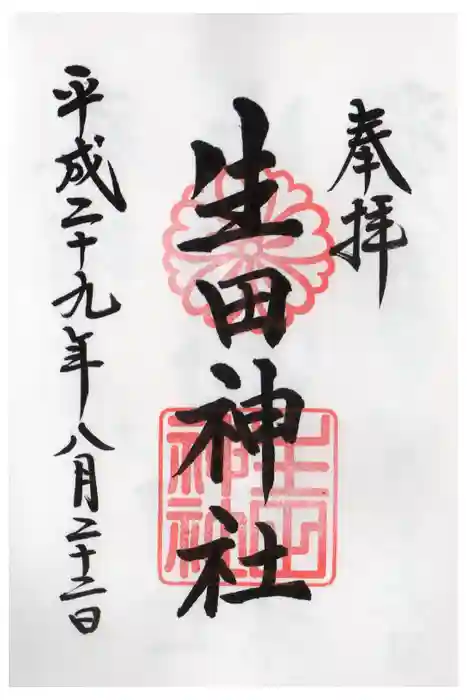 奉拝
生田神社
生田神社
平成二十九年八月二十二日